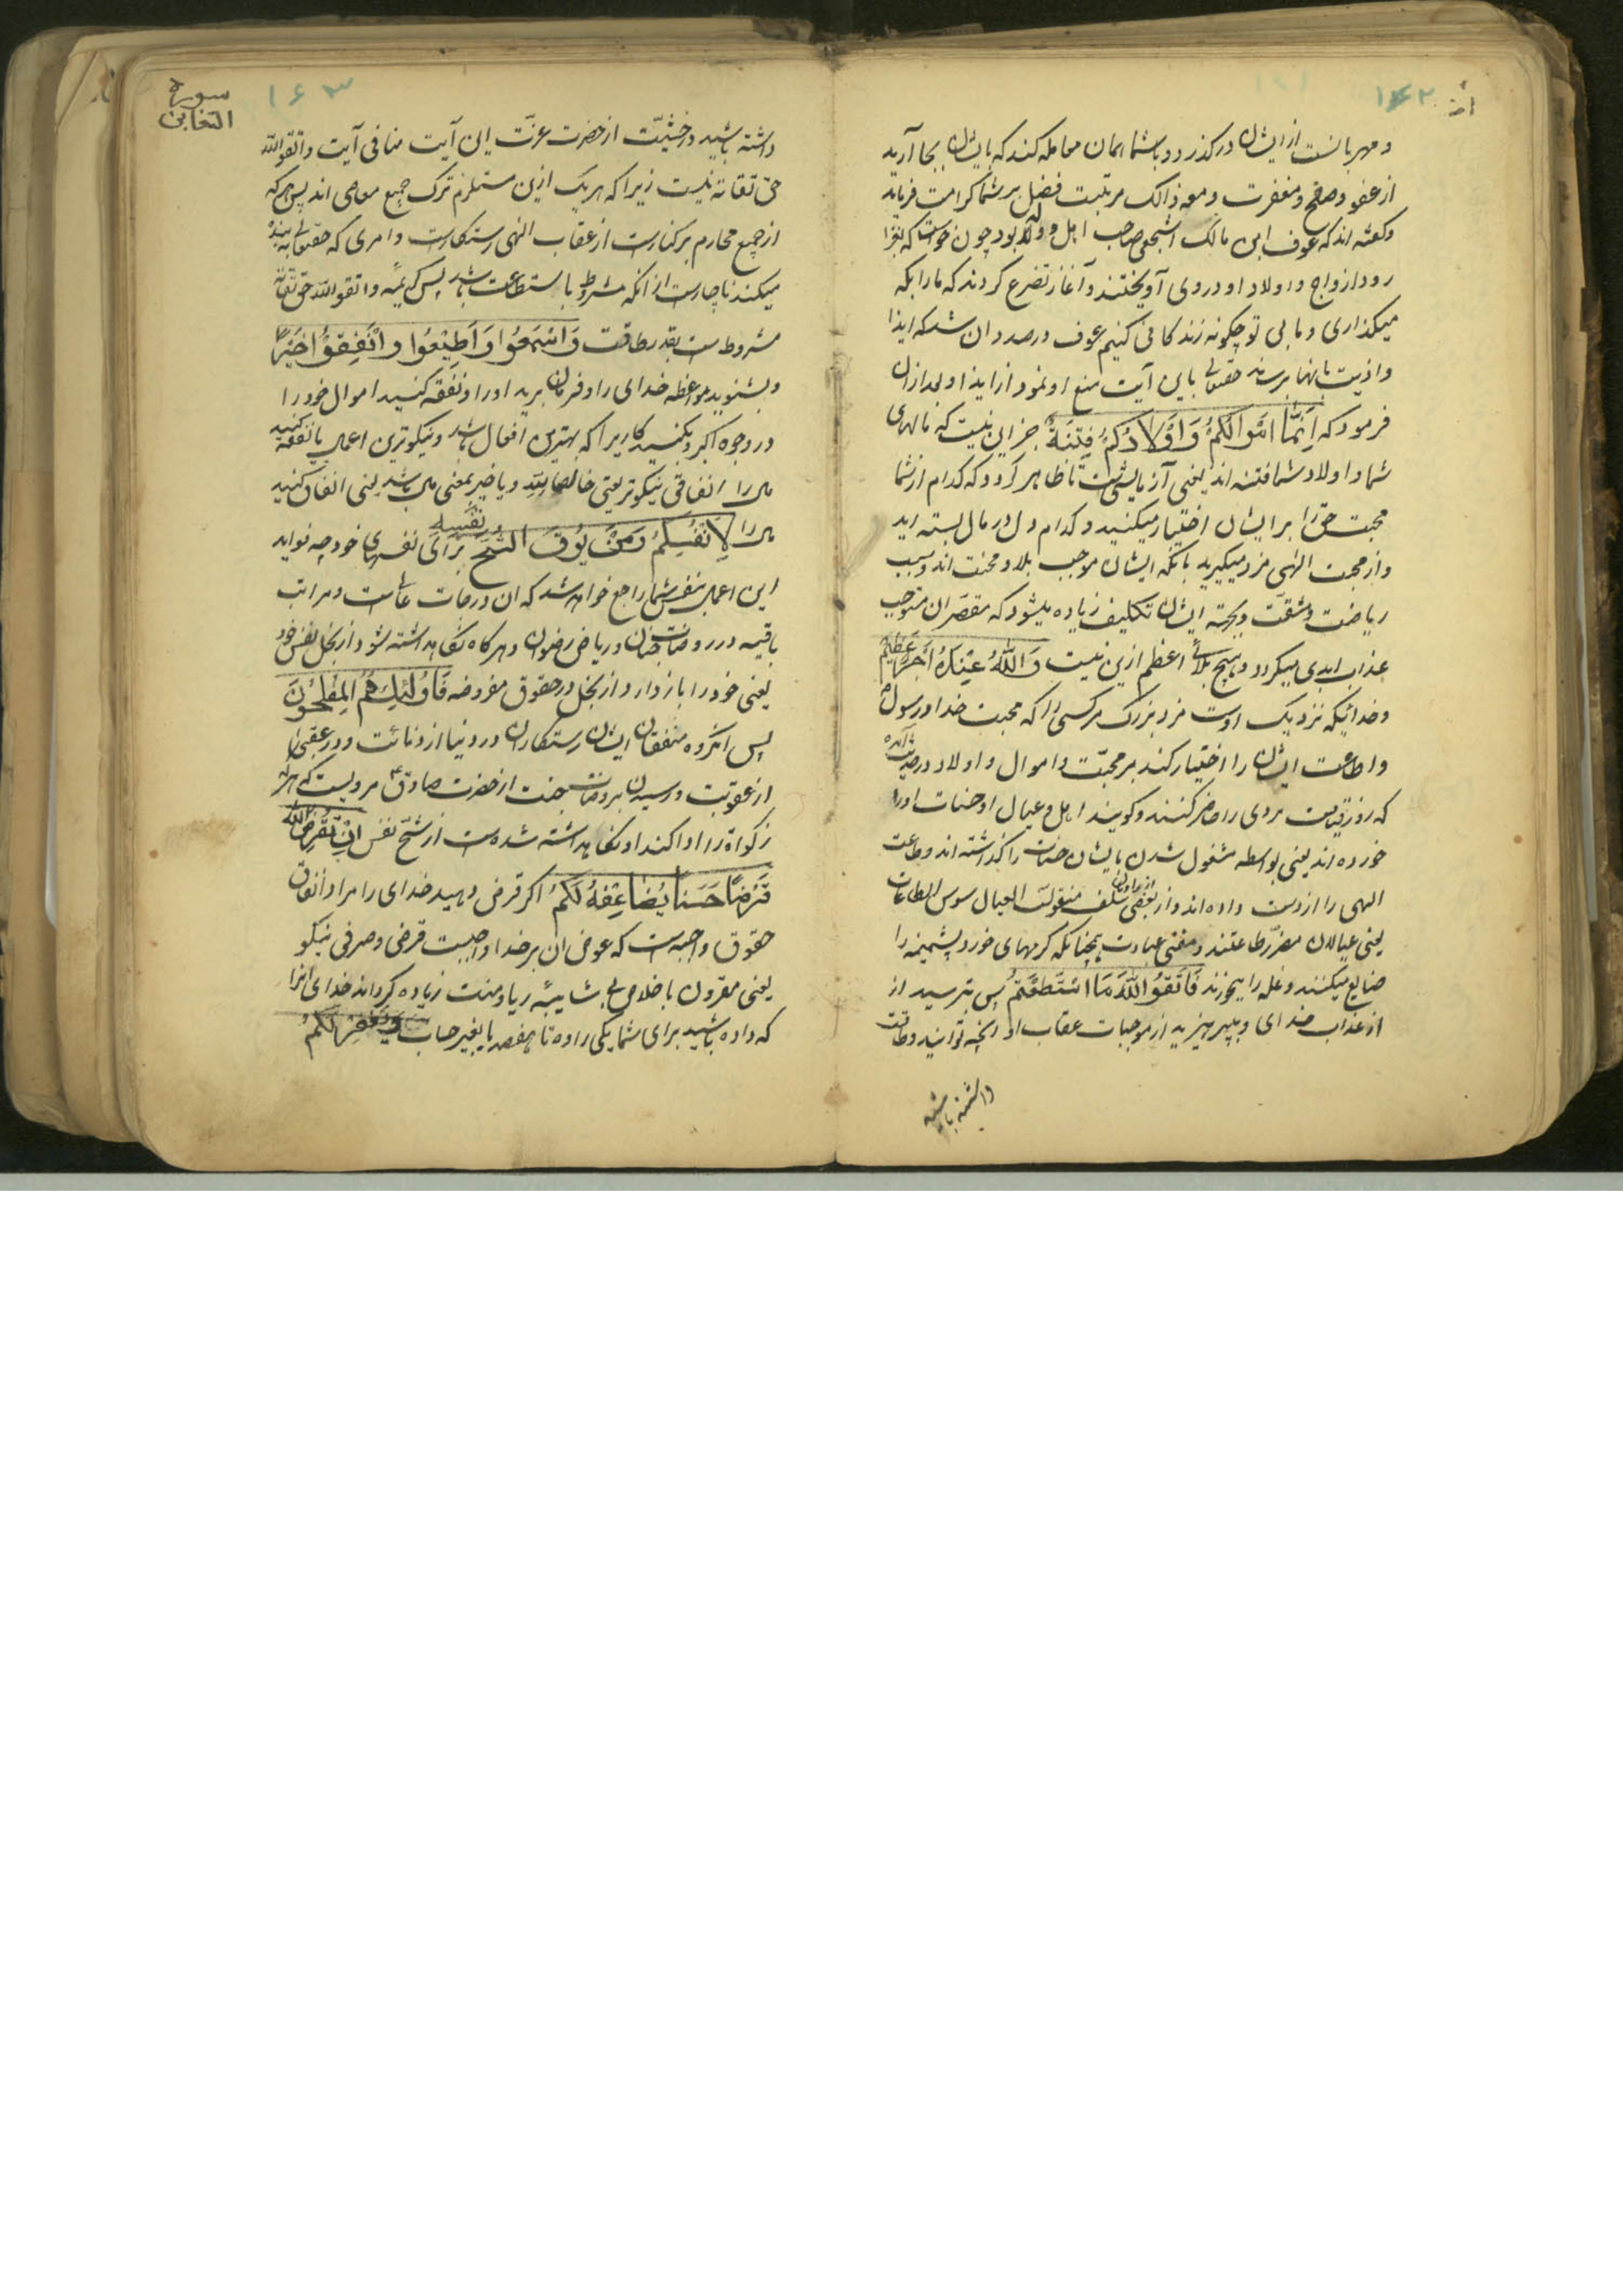 ۱۶۲
و مهربانست از ایشان در کذرد و با شما همان معامله کند که با ایشان بجا آرید
از عفو و صفح و مغفرت و معه ذالک مرتبت فضل بر شما کرامت فرماید
و کفته اند که عوف ابن مالک اشجعی صاحب اهل و ولد بود چون خواست که بغزا
رود ازواج و اولاد او در وی آویختند و آغاز تضرع کردند که ما را بکه
میکذاری و ما بی تو چکونه زندکانی کنیم عوف درصدد ان شد که ایذا
و اذیت بانها برساند حقتعالی باین آیت منع او نمود از ایذا و بعد ازان
فرمود که اِنَّمَا اَمْوَالُكُمْ وَ اَوْلَادُكُمْ فِتْنَةٌ جز این نیست که مالهای
شما و اولاد شما فتنه اند یعنی آزمایش است تا ظاهر کردد که کدام از شما
محبت حق را بر ایشان اختیار میکنید و کدام دل در مال بسته اید
و از محبت الهی مزد میکیرید بانکه ایشان موجب بلا و محنت اند و سبب
ریاضت و مشقت و بجهة ایشان تکلیف زیاده میشود که مقصران مستوجب
عذاب ابدی میکردد و هیچ بلائی اعظم ازین نیست وَ اللّٰهُ عِنْدَهُ اَجْرٌ عَظِیمٌ
و خدائیکه نزدیک اوست مزد بزرک مر کسی را که محبت خدا و رسول
و اطاعت ایشان را اختیار کند بر محبت و اموال و اولاد در حدیث آمده
که روز قیامت مردی را حاضر کنند و کویند اهل و عیال او حسنات او را
خورده اند یعنی بواسطه مشغول شدن بایشان حسنات را کذاشته اند و طاعت
الهی را از دست داده اند و از بعضی سلف منقولست العیال سوس الطاعات
یعنی عیالان مضر طاعتند و مفنی عبادت همچنانکه کرمهای خورد پشمینه را
ضایع میکنند و غله را میخورند فَاتَّقُوا اللّٰهَ مَا اسْتَطَعْتُمْ پس بترسید از
از عذاب خدای و بپرهیزید از موجبات عقاب او انچه توانید و طاقت
داشته باشید
سورة
التغابن
۱۶۳
داشته باشید و خشیت از حضرت عزت این آیت منافی آیت و اتقوا الله
حق تقاته نیست زیرا که هر یک ازین مستلزم ترک جمیع معاصی اند پس هرکه
از جمیع محارم برکنارست از عقاب الهی رستکارست و امری که حقتعالی به بنده
میکند ناچارست از انکه مشروط باستطاعت باشد پس کریمه و اتقوا الله حق تقاته
مشروط ست بقدر طاقت وَ اسْمَعُوا وَ اَطِیْعُوا وَ اَنْفِقُوا خَیْرًا
و بشنوید مواعظه خدای را و فرمان برید او را و نفقه کنید اموال خود را
در وجوه اکبر و بکنید کاریرا که بهترین افعال باشد و نیکوترین اعمال یا نفقه کنید
مال را انفاقی نیکوتر یعنی خالصا لله و یا خیر بمعنی مال باشد یعنی انفاق کنید
مال را لِاَنْفُسِكُمْ وَ مَنْ یُوقَ الشُّحَّ نَفْسِهِ برای نفسهای خود چه فواید
این اعمال بنفس شما راجع خواهد شد که ان درجات عالیست و مراتب
باقیه در روضات جنان و ریاض رضوان و هر کاه نکاهداشته شود از بخل نفس خود
یعنی خود را بازدارد از بخل در حقوق مفروضه فَاُولٰئِكَ هُمُ الْمُفْلِحُوْنَ
پس انکروه منفقان ایشان رستکاران در دنیا از دنائت و در عقبی
از عقوبت و رسیدن بروضات جنت از حضرت صادق ع مرویست که هر که
زکواة را ادا کند او نکاهداشته شده است از شح نفس اِنْ تُقْرِضُوا اللّٰهَ
قَرْضًا حَسَنًا یُضَاعِفْهُ لَكُمْ اکر قرض دهید خدای را مراد انفاق
حقوق واجبه است که عوض ان بر خدا واجبست قرضی و صرفی نیکو
یعنی مقرون باخلاص بی شایبه ریا و منت زیاده کرداند خدای انرا
که داده باشید برای شما یکی را ده تا هفصد یا بغیر حساب وَ یَغْفِرْ لَكُمْ